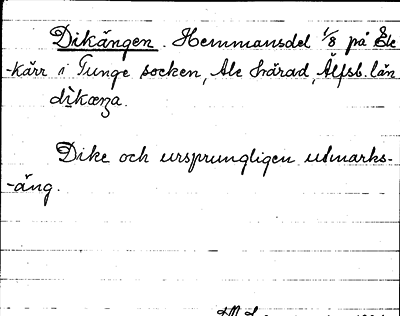 Dikängen. Hemmansdel 1/8 på Ele
-kärr i Tunge socken, Ale härad, Älfsb. län
dikæŋa.
Dike och ursprungligen utmarks-
-äng.